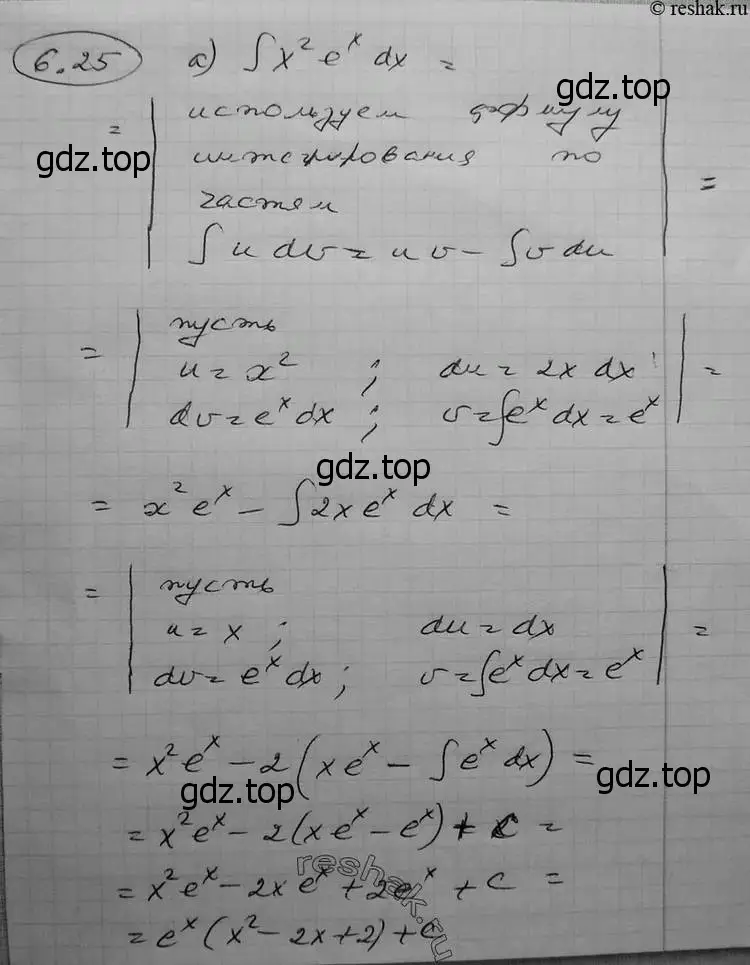 © reshak.ru
6.25 а) ∫ x² eˣ dx =
gdz.top
= | используем формулу
gdz.top
интегрирования по
частям
∫ u dv = u v - ∫ v du | =
= | пусть
u = x² ; du = 2x dx
dv = eˣ dx ; v = ∫ eˣ dx = eˣ | =
gdz.top
= x² eˣ - ∫ 2x eˣ dx =
= | пусть
u = x ; du = dx
dv = eˣ dx ; v = ∫ eˣ dx = eˣ | =
= x² eˣ - 2 (x eˣ - ∫ eˣ dx) =
gdz.top
gdz.top
= x² eˣ - 2 (x eˣ - eˣ) + c =
reshak.ru
= x² eˣ - 2x eˣ + 2eˣ + c =
= eˣ (x² - 2x + 2) + c